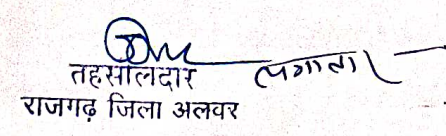 तहसीलदार लगातार
राजगढ़ जिला अलवर